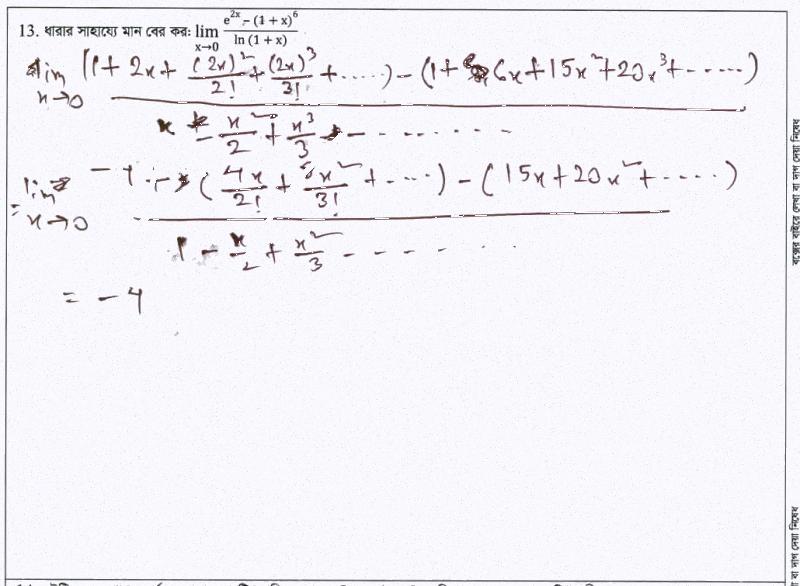 13. ধারার সাহায্যে মান বের কর: lim x→0 (e^2x − (1 + x)^6) / (ln (1 + x))
lim x→0 (1 + 2x + (2x)^2/2! + (2x)^3/3! + .....) − (1 + 6x + 15x^2 + 20x^3 + ------)
x − x^2/2 + x^3/3 - - - - - - - -
= lim x→0 − 4 + (4x/2! + 8x^2/3! + ....) − (15x + 20x^2 + ....)
1 − x/2 + x^2/3 - - - - - - -
= − 4
বক্সের বাইরে লেখা বা দাগ দেয়া নিষেধ
বা দাগ দেয়া নিষেধ